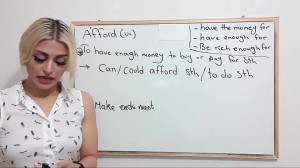 Afford (v.)
- have the money for
- have enough for
- Be rich enough for
To have enough money to buy or pay for sth
→ Can/Could afford sth/to do sth
Make ends meet